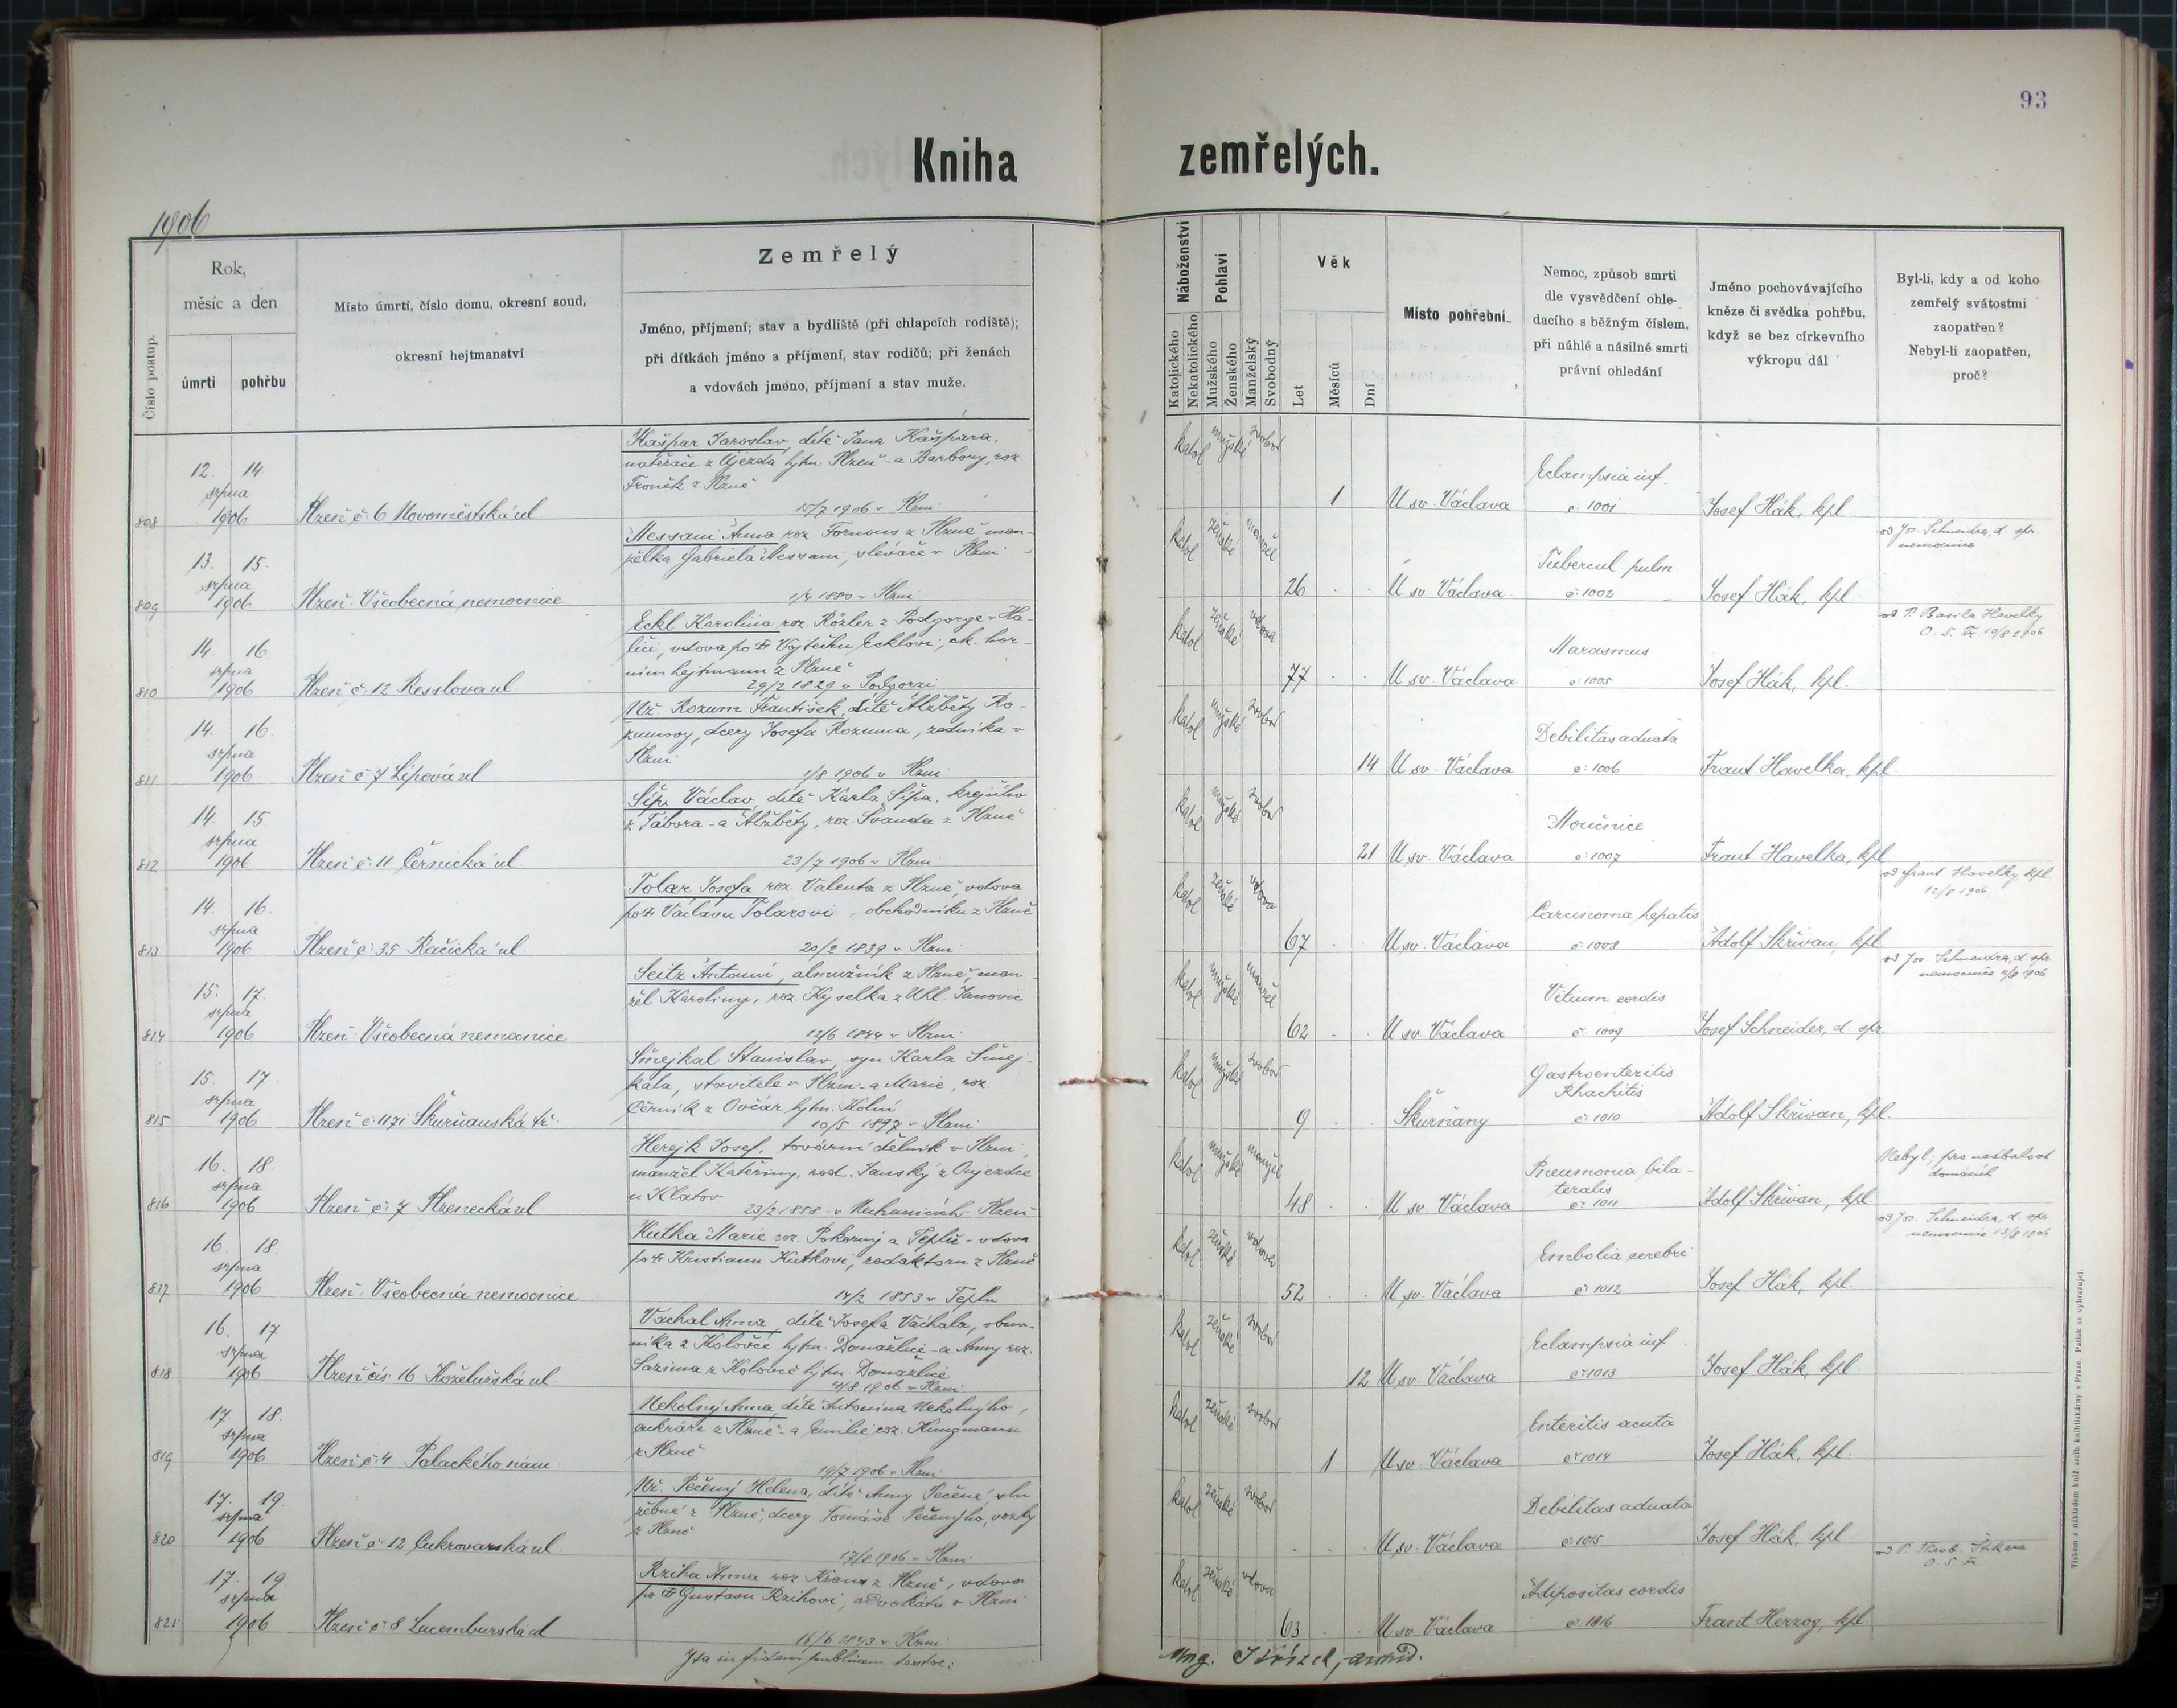 93
Kniha zemřelých.
1906
Číslo postup.
Rok,
měsíc a den
úmrtí
pohřbu
Místo úmrtí, číslo domu, okresní soud,
okresní hejtmanství
Zemřelý
Jméno, příjmení; stav a bydliště (při chlapcích rodiště);
při dítkách jméno a příjmení, stav rodičů; při ženách
a vdovách jméno, příjmení a stav muže.
Náboženství
Katolického
Nekatolického
Pohlaví
Mužského
Ženského
Manželský
Svobodný
Věk
Let
Měsíců
Dní
Místo pohřební
Nemoc, způsob smrti
dle vysvědčení ohle-
dacího s běžným číslem,
při náhlé a násilné smrti
právní ohledání
Jméno pochovávajícího
kněze či svědka pohřbu,
když se bez církevního
výkropu dál
Byl-li, kdy a od koho
zemřelý svátostmi
zaopatřen?
Nebyl-li zaopatřen,
proč?
808
12. 14
srpna
1906
Plzeň č. 6 Novoměstská ul
Kašpar Jaroslav, dítě Jana Kašpara,
natěrače z Újezda hjtm. Plzeň - a Barbory, roz
Froněk z Plzně
15/7 1906 v Plzni
katol mužské svobod
1
U sv. Václava
Eclampsia inf.
č. 1001
Josef Hák, kpl
809
13. 15.
srpna
1906
Plzeň. Všeobecná nemocnice
Messani Anna roz. Fornous z Plzně man-
želka Gabriela Messani, slévače v Plzni
1/4 1880 v Plzni
katol ženské manžel
26
U sv. Václava
Tubercul pulm.
č. 1002
Josef Hák, kpl.
od Jos. Schneidra, d. spr.
nemocnice
810
14. 16.
srpna
1906
Plzeň č. 12 Resslova ul
Eckl Karolina roz. Rözler z Podgorze v Ha-
liči, vdova po † Vojtěchu Ecklovi, ck. hor-
ním hejtmanu z Plzně
29/2 1829 v Podgorzi
katol ženské vdova
77
U sv. Václava
Marasmus
č. 1005
Josef Hák, kpl.
od P. Basila Havelky
O. S. Fr. 10/8 1906
811
14. 16.
srpna
1906
Plzeň č 7 Lipová ul
Nž. Rozum František, dítě Alžběty Ro-
zumovy, dcery Josefa Rozuma, zedníka v
Plzni
1/8 1906 v Plzni
katol mužské svobod
14
U sv. Václava
Debilitas adnata
č. 1006
Frant. Havelka, kpl.
812
14. 15.
srpna
1906
Plzeň č. 11 Černická ul.
Šíp Václav, dítě Karla Šípa, krejčího
z Tábora - a Alžběty, roz. Švanda z Plzně
23/7 1906 v Plzni
katol mužské svobod
21
U sv. Václava
Moučnice
č. 1007
Frant. Havelka, kpl
813
14. 16.
srpna
1906
Plzeň č. 35 Račická ul.
Tolar Josefa roz. Valenta z Plzně, vdova
po † Václavu Tolarovi, obchodníku z Plzně
20/2 1839 v Plzni
katol ženské vdova
67
U sv. Václava
Carcinoma hepatis
č. 1008
Adolf Skřivan, kpl
od Frant. Havelky, kpl.
12/8 1906
814
15. 17.
srpna
1906
Plzeň. Všeobecná nemocnice
Seitz Antonín, almužník z Plzně, man-
žel Karoliny, roz. Kyselka z Uhl. Janovic
12/6 1844 v Plzni
katol mužské manžel
62
U sv. Václava
Vitium cordis
č. 1009
Josef Schneider, d. spr
od Jos. Schneidra, d. spr.
nemocnice 11/8 1906
815
15. 17
srpna
1906
Plzeň č. 1171 Škurňanská tř.
Šmejkal Stanislav, syn Karla Šmej-
kala, stavitele v Plzni - a Marie, roz.
Černík z Ovčár hjtm. Kolín
10/5 1897 v Plzni
katol mužské svobod
9
Škurňany
Gastroenteritis
Rhachitis
č. 1010
Adolf Skřivan, kpl.
816
16. 18.
srpna
1906
Plzeň č. 7 Plzenecká ul
Herejk Josef, tovární dělník v Plzni,
manžel Kateřiny, rod. Janský z Oujezdce
u Klatov
23/2 1858 v Nechanicích - Plzeň
katol mužské manžel
48
U sv. Václava
Pneumonia bila-
teralis
č. 1011
Adolf Skřivan, kpl.
Nebyl, pro nedbalost
domácích
817
16. 18.
srpna
1906
Plzeň. Všeobecná nemocnice
Kutka Marie roz. Pokorný a Teplé - vdova
po † Kristianu Kutkovi, redaktoru z Plzně
14/2 1853 v Teplu
katol ženské vdova
52
U sv. Václava
Embolia cerebri
č. 1012
Josef Hák, kpl.
od Jos. Schneidra, d. spr.
nemocnice 13/8 1906
818
16. 17
srpna
1906
Plzeň čís. 16 Koželužská ul.
Váchal Anna, dítě Josefa Váchala, obuv-
níka z Koloveč hjtm. Domažlice - a Anny roz.
Sazima z Koloveč hjtm. Domažlice
4/8 1906 v Plzni
katol ženské svobod
12
U sv. Václava
Eclampsia inf
č. 1013
Josef Hák, kpl.
819
17. 18.
srpna
1906
Plzeň č. 4 Palackého nám
Nekolný Anna, dítě Antonína Nekolného,
cukráře z Plzně - a Emilie roz. Kungmann
z Plzně
19/7 1906 v Plzni
katol ženské svobod
1
U sv. Václava
Enteritis acuta
č. 1014
Josef Hák, kpl.
820
17. 19.
srpna
1906
Plzeň č. 12 Cukrovarská ul.
Nž. Pečený Helena, dítě Anny Pečené, slu-
žebné z Plzně, dcery Tomáše Pečeného, vozky
z Plzně
17/8 1906 v Plzni
katol ženské svobod
U sv. Václava
Debilitas adnata
č. 1015
Josef Hák, kpl
821
17. 19
srpna
1906
Plzeň č. 8 Lucemburská ul
Rziha Anna roz. Kraus z Plzně, vdova
po † Gustavu Rzihovi, advokátu v Plzni
16/6 1843 v Plzni
katol ženské vdova
63
U sv. Václava
Adipositas cordis
č. 1016
Frant Herzog, kpl
O. S. Fr
Ita in fidem publicam testor:
Tiskem a nákladem kníž. arcib. knihtiskárny v Praze. Patisk se vyhrazuje.